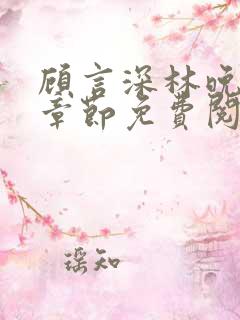 顾言深林晚
章节免费阅
瑶知